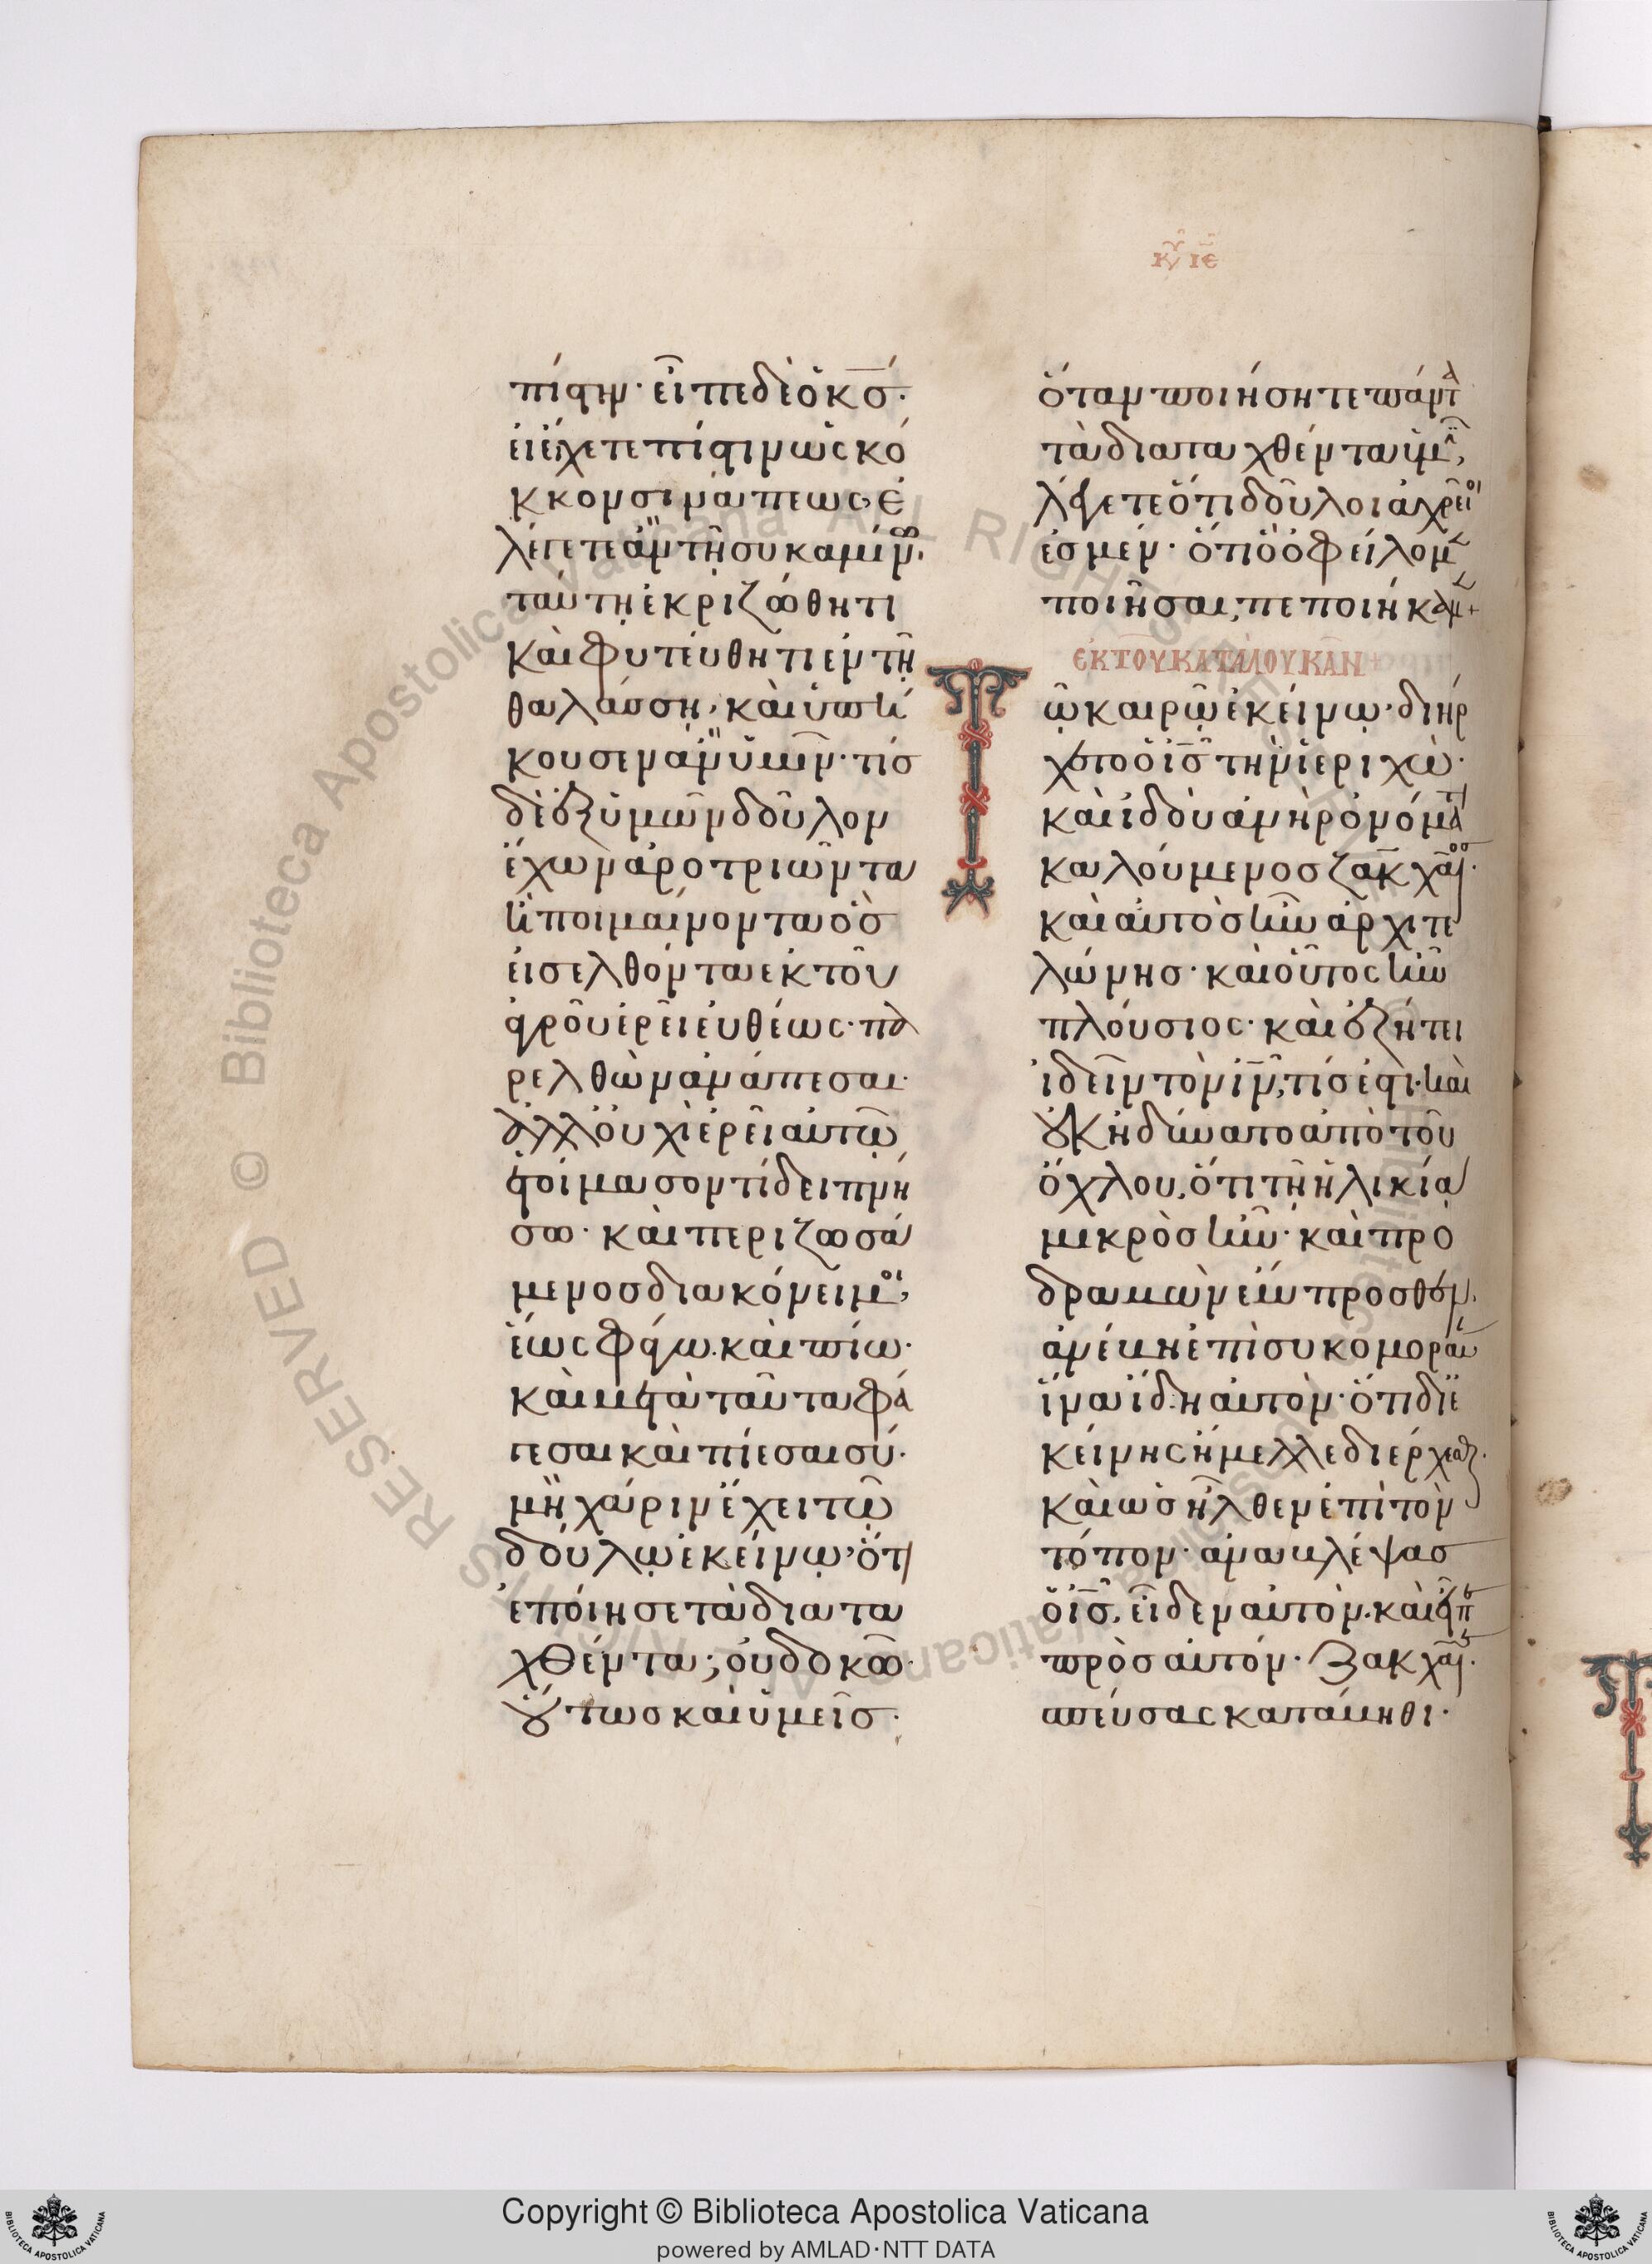 κυ ιε
πίστιν· εἶπε δὲ ὁ κσ·
εἰ ἔχετε πίστιν ὡς κό
κκον σινάπεως, ἐ
λέγετε ἂν τῇ συκαμίνω,
ταύτῃ ἐκριζώθητι
καὶ φυτεύθητι ἐν τῇ
θαλάσσῃ, καὶ ὑπή
κουσεν ἂν ὑμῖν· τίσ
δὲ ἐξ ὑμῶν δοῦλον
ἔχων ἀροτριῶντα
ἢ ποιμαίνοντα ὃσ
εἰσελθόντα ἐκ τοῦ
ἀγροῦ ἐρεῖ εὐθέως· πα
ρελθὼν ἀνάπεσαι·
ἀλλ' οὐχὶ ἐρεῖ αὐτῶ
ἑτοίμασον τί δειπνή
σω· καὶ περιζωσά
μενος διακόνει μοι,
ἕως φάγω καὶ πίω·
καὶ μετὰ ταῦτα φά
γεσαι καὶ πίεσαι σύ·
μὴ χάριν ἔχει τῶ
δούλῳ ἐκείνῳ, ὅτι
ἐποίησε τὰ διατα
χθέντα; οὐ δοκῶ·
οὕτως καὶ ὑμεῖσ·
ὅταν ποιήσητε πάντα
τὰ διαταχθέντα ὑμῖν,
λέγετε ὅτι δοῦλοι ἀχρεῖοι
ἐσμεν· ὅτι ὃ ὀφείλομεν
ποιῆσαι, πεποιήκαμεν+
ΕΚ ΤΟΥ ΚΑΤΑ ΛΟΥΚΑΝ
Τῷ καιρῷ ἐκείνῳ· διήρ
χετο ὁ ισ τὴν ἱεριχὼ·
καὶ ἰδοὺ ἀνὴρ ὀνόματι
καλούμενοσ ζακχαῖος·
καὶ αὐτὸσ ἦν ἀρχιτε
λώνησ· καὶ οὗτος ἦν
πλούσιος· καὶ ἐζήτει
ἰδεῖν τὸν ιν, τίσ ἐστι· καὶ
οὐκ ἠδύνατο ἀπὸ τοῦ
ὄχλου, ὅτι τῇ ἡλικίᾳ
μικρὸσ ἦν· καὶ προ
δραμὼν ἔμπροσθεν,
ἀνέβη ἐπὶ συκομοραίαν
ἵνα ἴδῃ αὐτόν· ὅτι δι' ἐ
κείνης ἤμελλε διέρχεσθαι·
καὶ ὡσ ἦλθεν ἐπὶ τὸν
τόπον· ἀναβλέψασ
ὁ ισ, εἶδεν αὐτὸν· καὶ εἶπε
πρὸσ αὐτόν· Ζακχαῖε·
σπεύσας κατάβηθι·
Copyright © Biblioteca Apostolica Vaticana
powered by AMLAD·NTT DATA